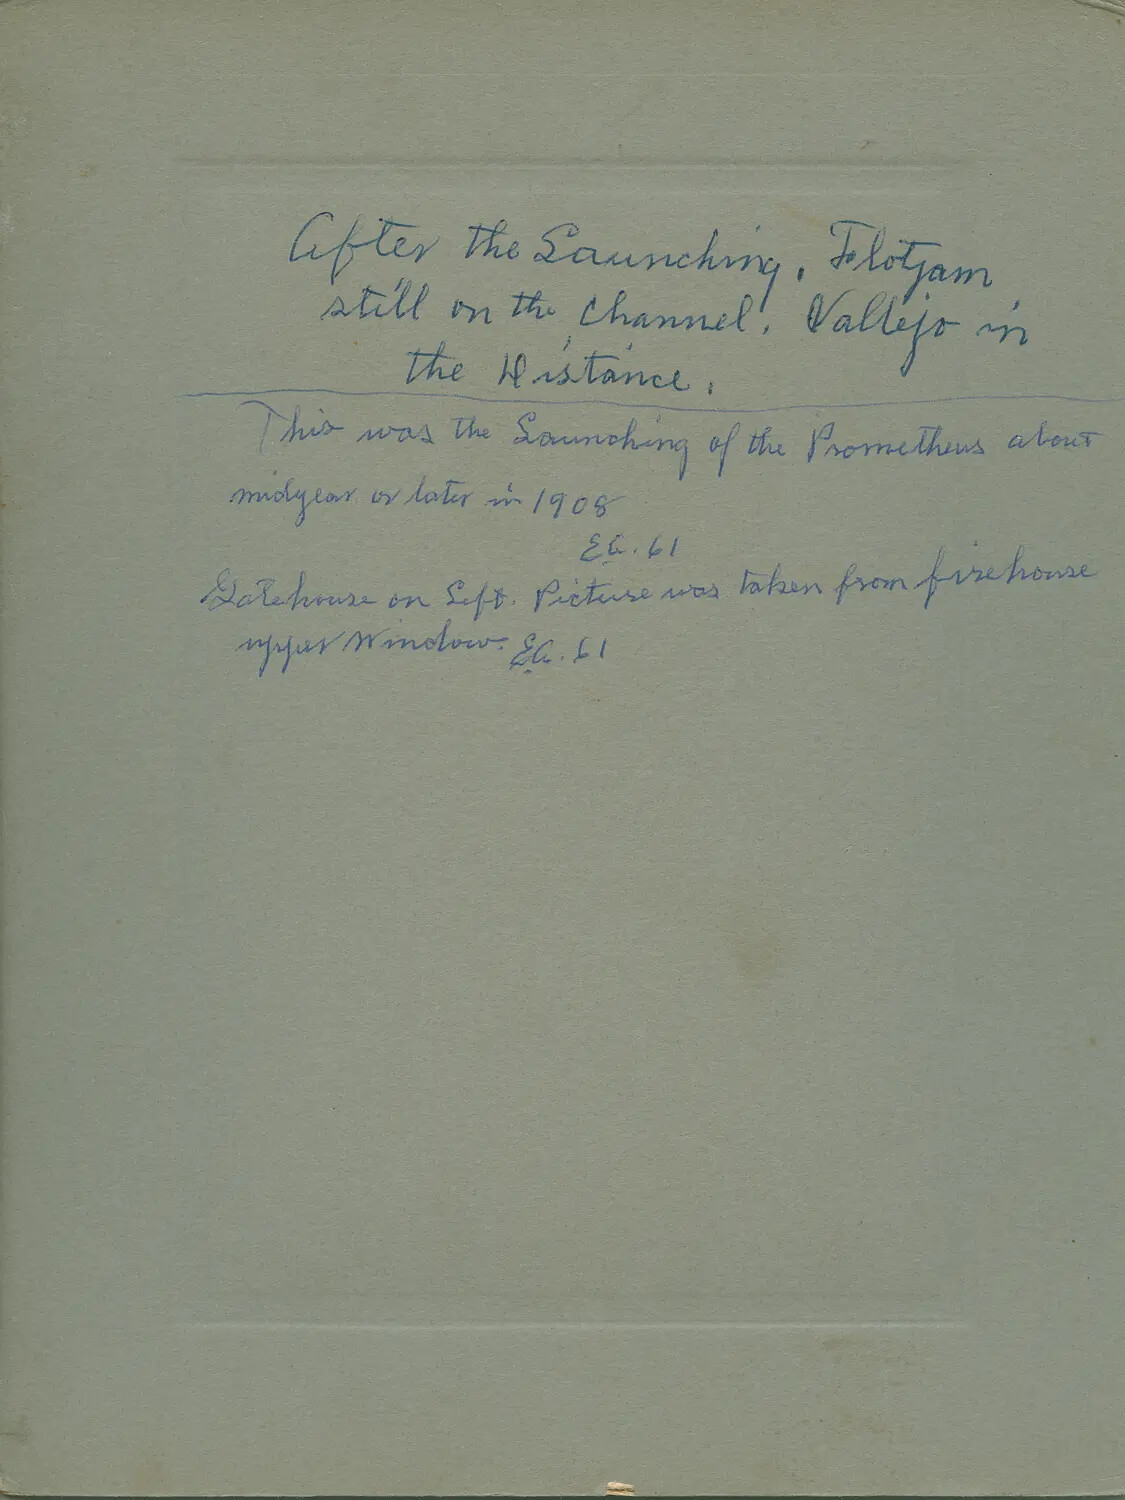 After the Launching. Flotjam
still on the channel. Vallejo in
the Distance.
This was the Launching of the Prometheus about
midyear or later in 1908
EG. 61
Gatehouse on Left. Picture was taken from firehouse
upper Window. EG. 61